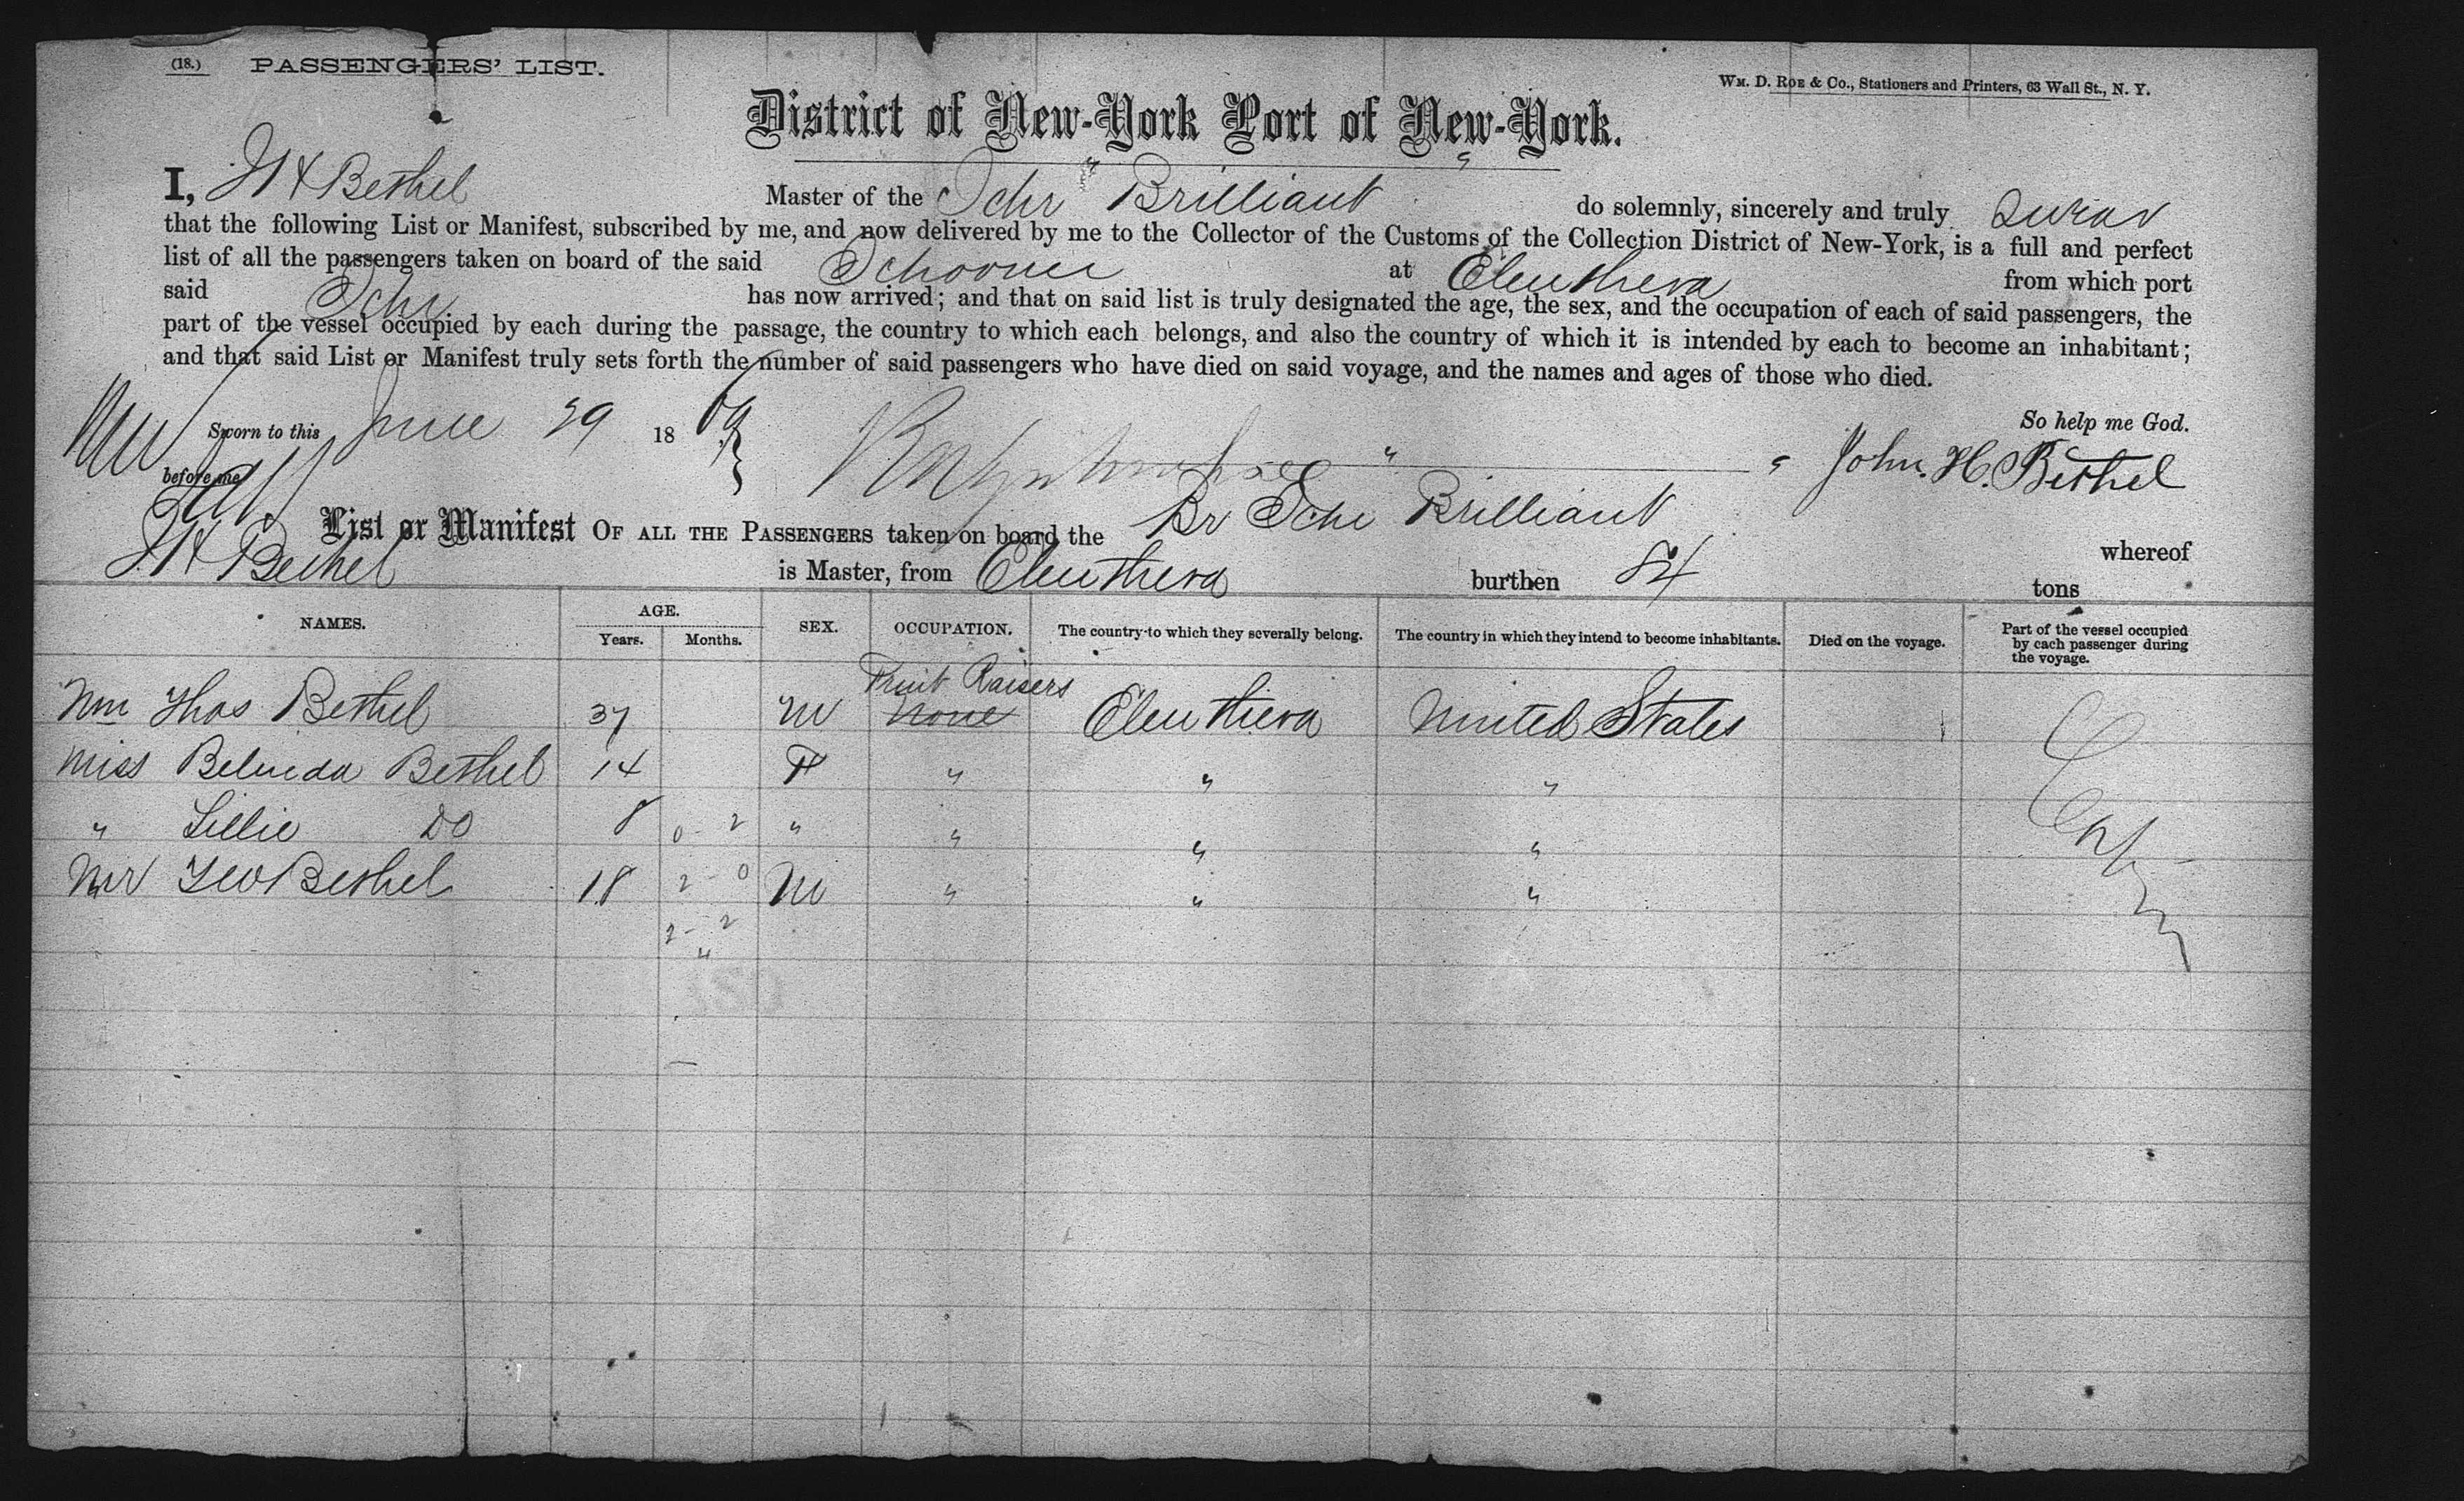 (18.) PASSENGERS' LIST.
WM. D. ROE & CO., Stationers and Printers, 63 Wall St., N. Y.
District of New-York Port of New-York.
I, J H Bethel Master of the Schr "Brilliant" do solemnly, sincerely and truly swear
that the following List or Manifest, subscribed by me, and now delivered by me to the Collector of the Customs of the Collection District of New-York, is a full and perfect
list of all the passengers taken on board of the said Schooner at Eleuthera from which port
said Schr has now arrived; and that on said list is truly designated the age, the sex, and the occupation of each of said passengers, the
part of the vessel occupied by each during the passage, the country to which each belongs, and also the country of which it is intended by each to become an inhabitant;
and that said List or Manifest truly sets forth the number of said passengers who have died on said voyage, and the names and ages of those who died.
So help me God.
Sworn to this June 29 1869
John. H. Bethel
before me
List or Manifest OF ALL THE PASSENGERS taken on board the Br Schr "Brilliant" whereof
J H Bethel is Master, from Eleuthera burthen 84 tons
NAMES. AGE. Years. Months. SEX. OCCUPATION. The country to which they severally belong. The country in which they intend to become inhabitants. Died on the voyage. Part of the vessel occupied by each passenger during the voyage.
Fruit Raisers
Wm Thos Bethel 37 M None Eleuthera United States
Miss Belinda Bethel 14 F " " "
" Lillie Do 8 0-2 " " " "
Mr Geo Bethel 18 2-0 M " " "
2-2
4